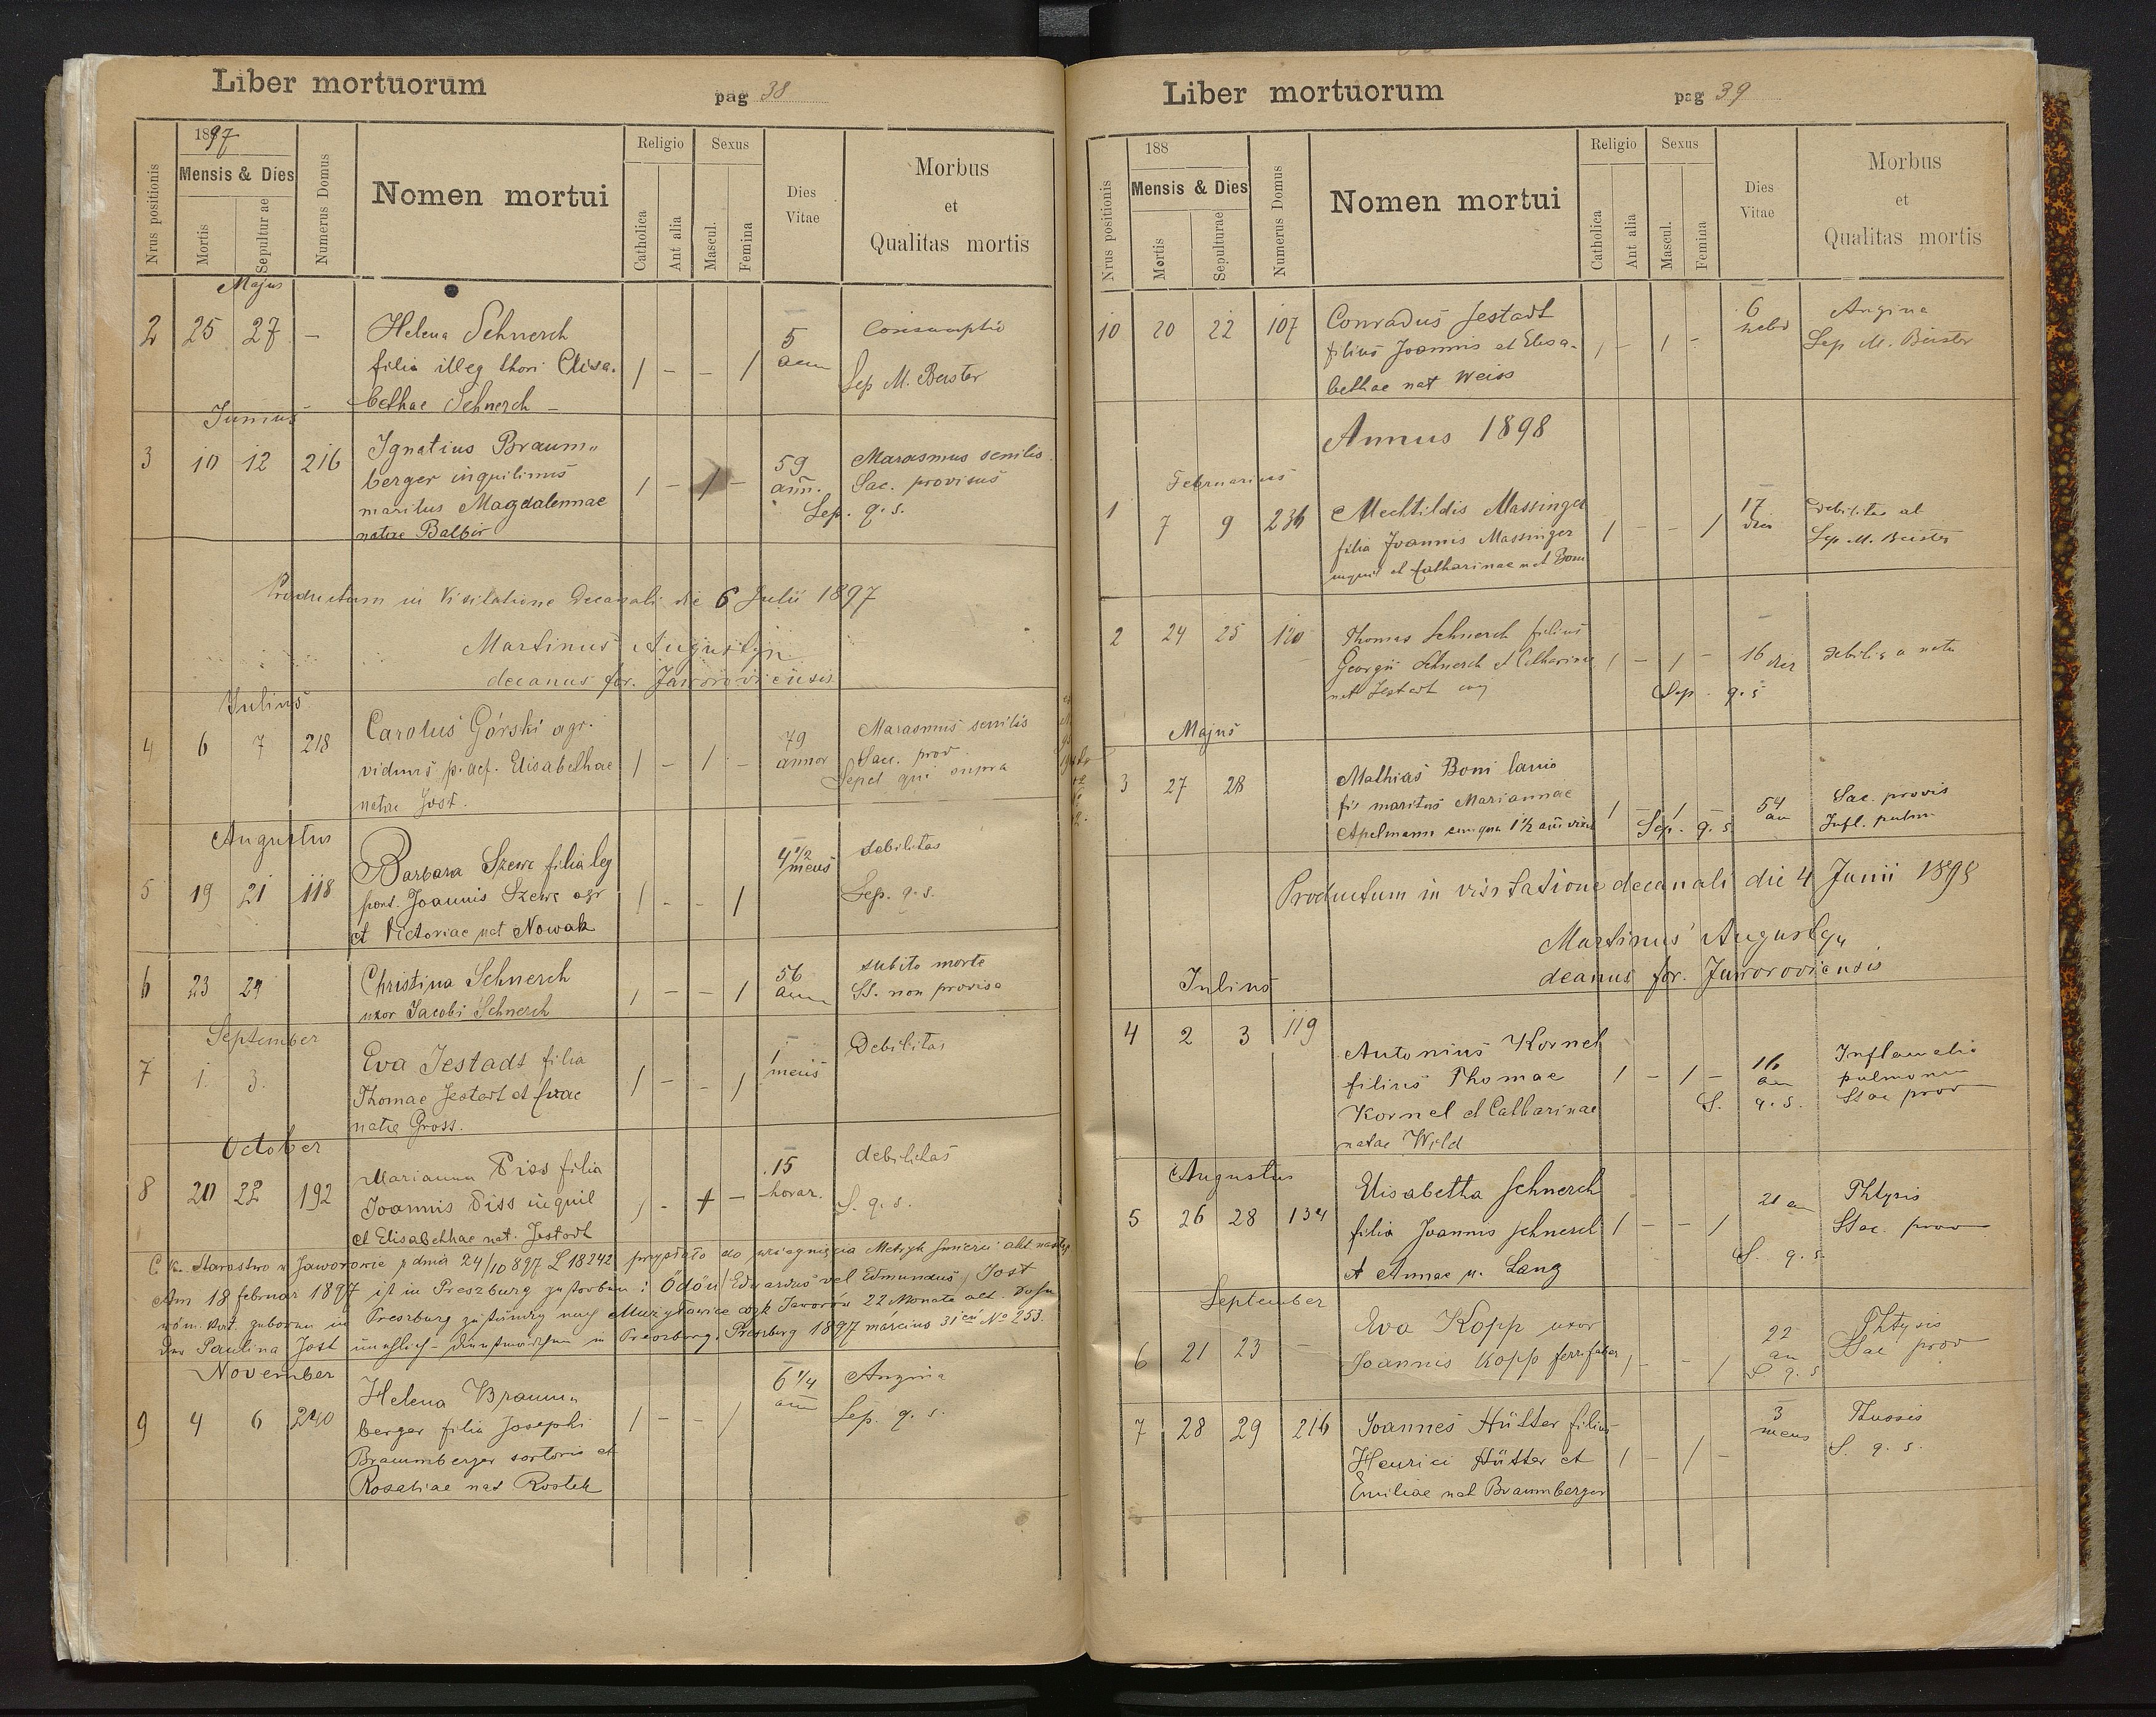 Liber mortuorum
pag 38
1897
Mensis & Dies
Nrus positionis
Mortis
Sepultur ae
Numerus Domus
Nomen mortui
Religio
Catholica
Aut alia
Sexus
Mascul.
Femina
Dies
Vitae
Morbus
et
Qualitas mortis
Majus
2 25 27 – Helena Schnerch 5 Consumptio
filia illeg thori Elisa- / – – / ann
bethae Schnerch – Sep M. Beister
Junius
3 10 12 216 Ignatius Braum„ 59 Marasmus senilis
berger inquilinus / – / – ann. Sac. provisus
maritus Magdalennae Sep. q. s.
natae Balbir
Productum in Visitatione Decanali die 6 Julii 1897
Martinus Augustyn
decanus for. Jaworoviensis
Julius
4 6 7 218 Carolus Górski agr. 79 Marasmus senilis
viduus p. def. Elisabethae / – / – annor Sac. prov
natae Jost. Sepel qui supra
Augustus
5 19 21 118 Barbara Szewc filia leg 4 1/2 debilitas
Joannis Szewc agr / – – / mens Sep. q. s.
et Victoriae nat Nowak
6 23 24 Christina Schnerch 56 subito morte
uxor Jacobi Schnerch / – – / ann SS. non provisa
September
7 1. 3. Eva Jestadt filia 1 Debilitas
Thomae Jestadt et Evae / – – / mens
natae Gross.
October
8 20 22 192 Marianna Piss filia 15 debilitas
Joannis Piss inquil / – + – horar. S. q. s.
et Elisabethae nat. Jestadt
C. k. Starostwo w Jaworowie z dnia 24/10 897 L 18242 przysłało do wciągnięcia Metryk śmierci akt
Am 18 februar 1897 ist in Preszburg gestorben: Ödön / Eduardus vel Edmundus / Jost
röm. kat. geboren in Presburg zuständig nach Mużyłowice Jaworów 22 Monate alt. Sohn
der Paulina Jost unehlich – in Presburg. Presburg 1897 március 31 No 253.
November
9 4 6 240 Helena Braum„ 6 1/4 Angina
berger filia Josephi / – – / ann Sep. q. s.
Braumberger sartoris et
Rosaliae nat Rostek
Liber mortuorum
pag 39
188
Mensis & Dies
Nrus positionis
Mortis
Sepulturae
Numerus Domus
Nomen mortui
Religio
Catholica
Aut alia
Sexus
Mascul.
Femina
Dies
Vitae
Morbus
et
Qualitas mortis
10 20 22 107 Conradus Jestadt 6 Angina
filius Joannis et Elisa- / – / – hebd Sep M. Beister
bethae nat Weiss
Annus 1898
Februarius
1 7 9 236 Mechtildis Massinger 17 debilitas
filia Joannis Massinger / – – / dies Sep. M. Beister
inquil et Catharinae nat Boni
2 24 25 120 Thomas Schnerch filius
Georgii Schnerch et Catharinae / – / – 16 dies debilis a natu
nat Jestadt Sep. q. s
Majus
3 27 28 Mathias Boni lanio
maritus Mariannae / – / – 54 Sac. provis
Apelmann cum qua 1 1/2 ann vixit Sep. q. s. an Infl. pulm
Productum in visitatione decanali die 4 Junii 1898
Martinus Augustyn
decanus for. Jaworoviensis
Julius
4 2 3 119 Antonius Kornel 16 Inflamatio
filius Thomae / – / – an pulmonum
Kornel et Catharinae S. q. s. SSac prov
natae Wild
Augustus
5 26 28 134 Elisabetha Schnerch 21 an Phtysis
filia Joannis Schnerch / – – / SSac. prov
et Annae n. Lang S. q. s.
September
6 21 23 – Eva Kopp uxor 22 Phtysis
Joannis Kopp ferrifaber / – – / an Sac prov
S q. s
7 28 29 216 Joannes Hütter filius 3 Tussis
Henrici Hütter et / – / – mens S. q. s.
Emiliae nat Braumberger